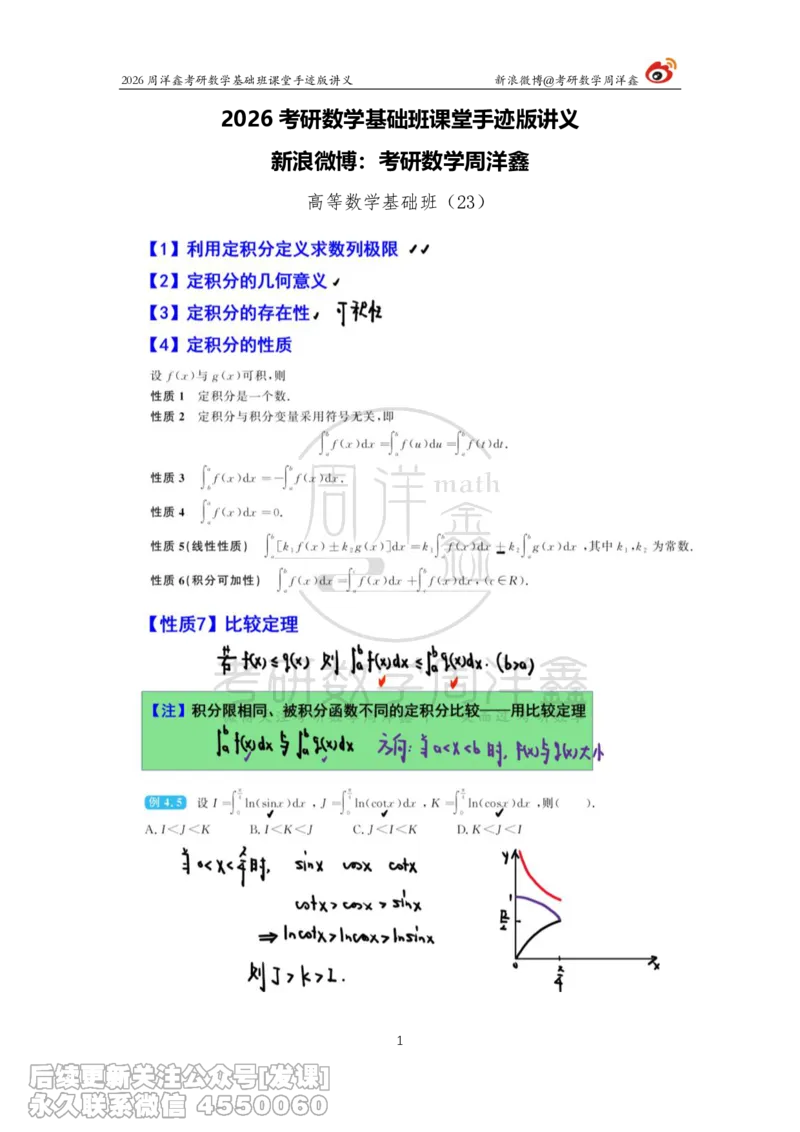 2026 周洋鑫考研数学基础班课堂手迹版讲义 新浪微博@考研数学周洋鑫
2026 考研数学基础班课堂手迹版讲义
新浪微博：考研数学周洋鑫
高等数学基础班（23）
【1】利用定积分定义求数列极限 ✓✓
【2】定积分的几何意义 ✓
【3】定积分的存在性 ✓ 可积性
【4】定积分的性质
设 f(x)与 g(x)可积,则
性质 1 定积分是一个数.
性质 2 定积分与积分变量采用符号无关,即
∫_a^b f(x)dx = ∫_a^b f(u)du = ∫_a^b f(t)dt.
性质 3 ∫_b^a f(x)dx = −∫_a^b f(x)dx.
性质 4 ∫_a^a f(x)dx = 0.
性质 5(线性性质) ∫_a^b [k₁f(x) ± k₂g(x)]dx = k₁∫_a^b f(x)dx ± k₂∫_a^b g(x)dx ,其中 k₁,k₂ 为常数.
性质 6(积分可加性) ∫_a^b f(x)dx = ∫_a^c f(x)dx + ∫_c^b f(x)dx, (c∈R).
【性质7】比较定理
若 f(x) ≤ g(x) 则 ∫_a^b f(x)dx ≤ ∫_a^b g(x)dx. (b>a)
【注】积分限相同、被积分函数不同的定积分比较——用比较定理
∫_a^b f(x)dx 与 ∫_a^b g(x)dx 方向: 当 a<x<b 时, f(x)与g(x)大小
例 4.5 设 I = ∫_0^{π/4} ln(sinx)dx , J = ∫_0^{π/4} ln(cotx)dx , K = ∫_0^{π/4} ln(cosx)dx ,则( ).
A. I<J<K B. I<K<J C. J<I<K D. K<J<I
当 0<x<π/4 时, sinx cosx cotx
cotx > cosx > sinx
⇒ lncotx > lncosx > lnsinx
则 J > K > I.
y
1
√2/2
0 π/4 x
周洋鑫 math
考研数学周洋鑫
1
后续更新关注公众号[发课]
永久联系微信 4550060